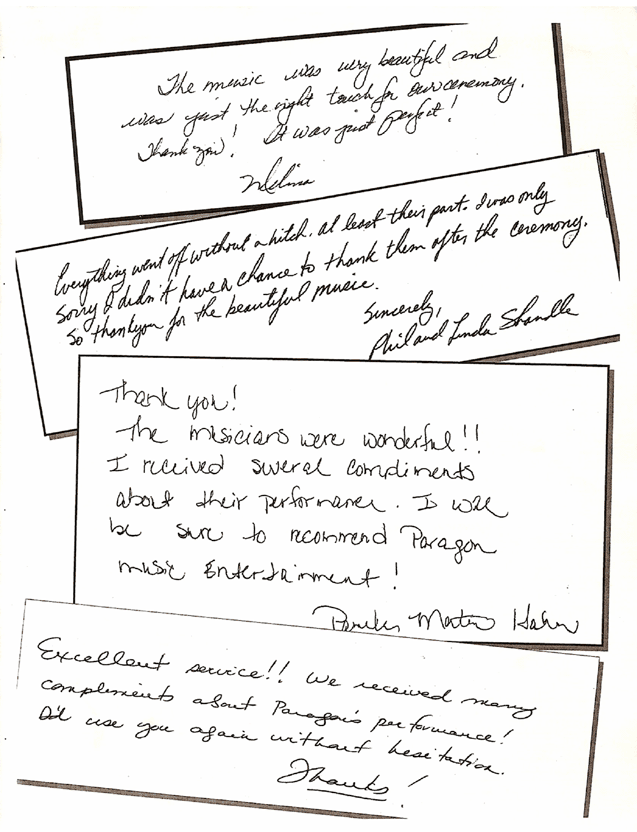 The music was very beautiful and
was just the right touch for our ceremony.
Thank you! It was just perfect!
Melina
Everything went off without a hitch, at least their part. I was only
sorry I didn't have a chance to thank them after the ceremony.
So thankyou for the beautiful music.
Sincerely,
Phil and Linda Shandle
Thank you!
The musicians were wonderful!!
I received several compliments
about their performance. I will
be sure to recommend Paragon
music Entertainment!
Martin
Excellent service!! We received many
complements about Paragon's performance!
I'd use you again without hesitation.
Thanks!